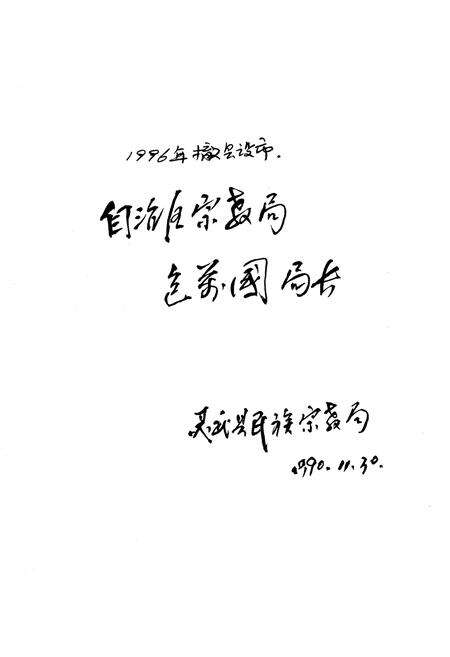 1996年撤县设市.
自治区宗教局
萬國 局长
灵武县民族宗教局
1990.11.30.